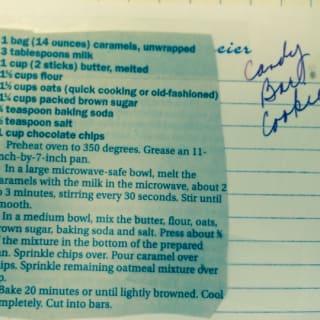 1 bag (14 ounces) caramels, unwrapped
3 tablespoons milk
1 cup (2 sticks) butter, melted
1½ cups flour
1½ cups oats (quick cooking or old-fashioned)
1¼ cups packed brown sugar
teaspoon baking soda
teaspoon salt
1 cup chocolate chips
Preheat oven to 350 degrees. Grease an 11-
nch-by-7-inch pan.
In a large microwave-safe bowl, melt the
aramels with the milk in the microwave, about 2
o 3 minutes, stirring every 30 seconds. Stir until
mooth.
In a medium bowl, mix the butter, flour, oats,
rown sugar, baking soda and salt. Press about
f the mixture in the bottom of the prepared
an. Sprinkle chips over. Pour caramel over
ips. Sprinkle remaining oatmeal mixture over
p.
Bake 20 minutes or until lightly browned. Cool
mpletely. Cut into bars.
eier
Candy
Bar
Cookie